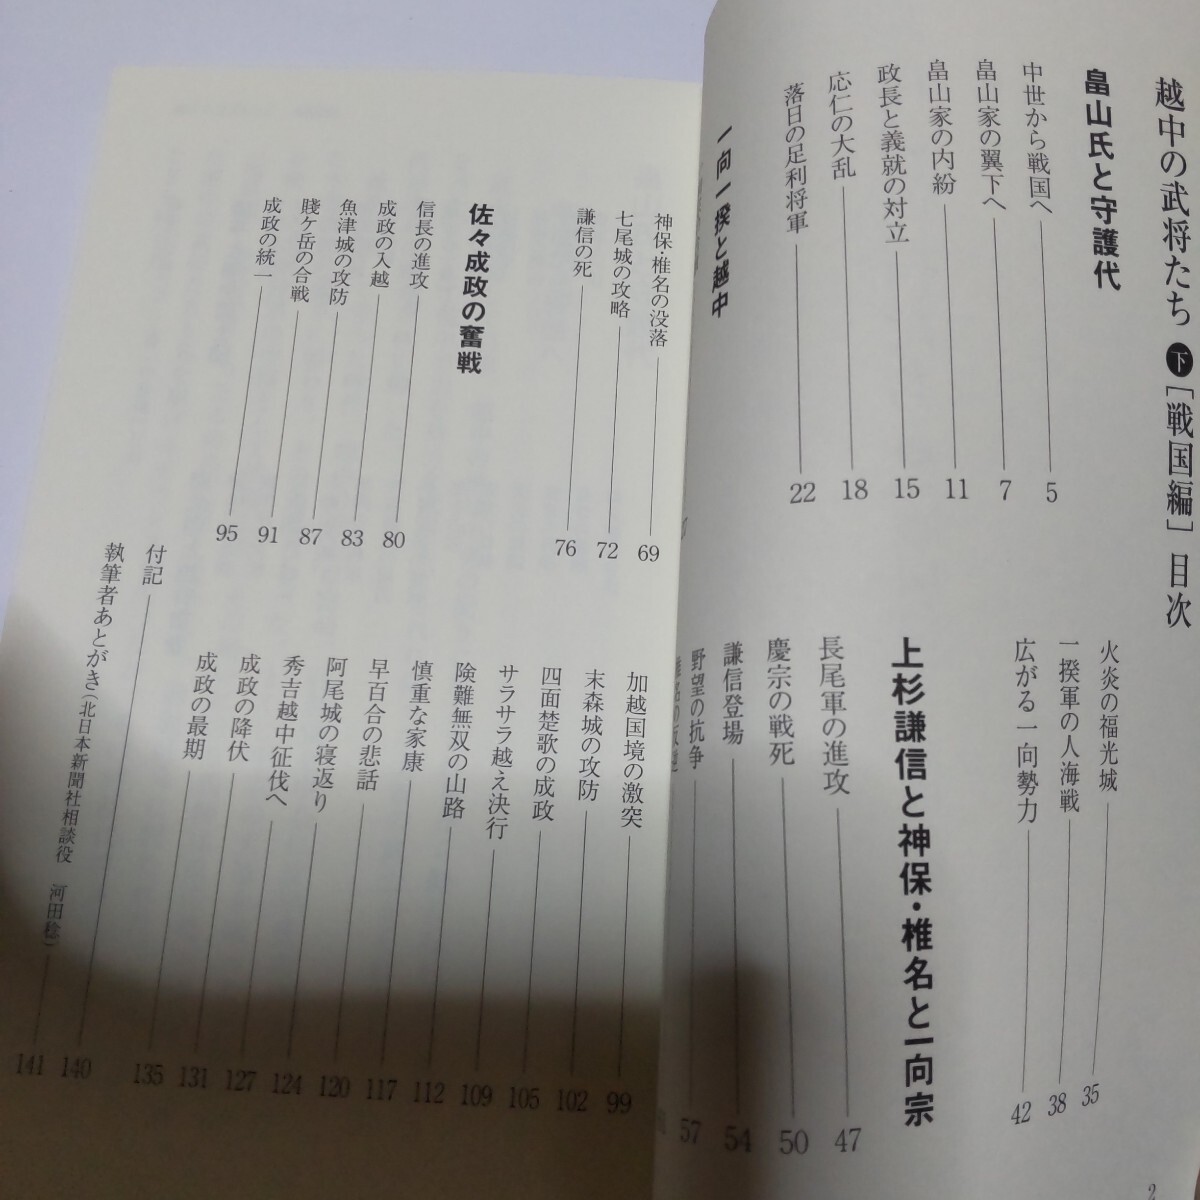 越中の武将たち 下 [戦国編] 目次
畠山氏と守護代
中世から戦国へ 5
畠山家の翼下へ 7
畠山家の内紛 11
政長と義就の対立 15
応仁の大乱 18
落日の足利将軍 22
一向一揆と越中
火炎の福光城 35
一揆軍の人海戦 38
広がる一向勢力 42
上杉謙信と神保・椎名と一向宗
長尾軍の進攻 47
慶宗の戦死 50
謙信登場 54
野望の抗争 57
2
神保・椎名の没落 69
七尾城の攻略 72
謙信の死 76
佐々成政の奮戦
信長の進攻 80
成政の入越 83
魚津城の攻防 87
賤ケ岳の合戦 91
成政の統一 95
加越国境の激突 99
末森城の攻防 102
四面楚歌の成政 105
サラサラ越え決行 109
険難無双の山路 112
慎重な家康 117
早百合の悲話 120
阿尾城の寝返り 124
秀吉越中征伐へ 127
成政の降伏 131
成政の最期 135
付記 140
執筆者あとがき(北日本新聞社相談役 河田稔) 141